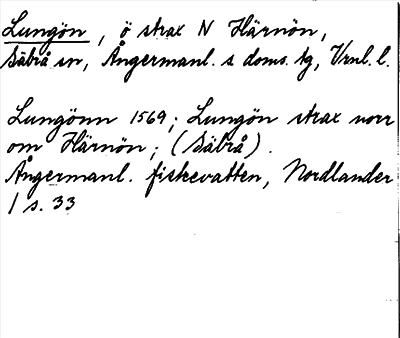 Lungön, ö strax N Härnön,
Säbrå sn, Ångermanl. s doms. tg, Vrnl. l.
Lungönn 1569; Lungön strax norr
om Härnön; (Säbrå).
Ångermanl. fiskevatten, Nordlander
1 s. 33